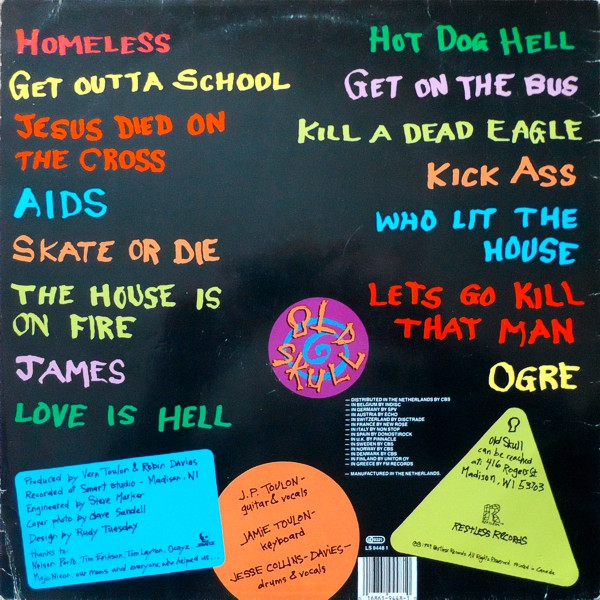 HOMELESS
GET OUTTA SCHOOL
JESUS DIED ON
THE CROSS
AIDS
SKATE OR DIE
THE HOUSE IS
ON FIRE
JAMES
LOVE IS HELL
HOT DOG HELL
GET ON THE BUS
KILL A DEAD EAGLE
KICK ASS
WHO LIT THE
HOUSE
LETS GO KILL
THAT MAN
OGRE
OLD
SKULL
— DISTRIBUTED IN THE NETHERLANDS BY CBS
— IN BELGIUM BY INDISC
— IN GERMANY BY SPV
— IN AUSTRIA BY ECHO
— IN SWITZERLAND BY DISCTRADE
— IN FRANCE BY NEW ROSE
— IN ITALY BY NON STOP
— IN SPAIN BY DONOSTIROCK
— IN U.K. BY PINNACLE
— IN SWEDEN BY CBS
— IN NORWAY BY CBS
— IN DENMARK BY CBS
— IN FINLAND BY UNITOR OY
— IN GREECE BY FM RECORDS
— MANUFACTURED IN THE NETHERLANDS.
Produced by Vern Toulon & Robin Davies
Recorded at Smart Studio - Madison, WI
Engineered by Steve Marker
Cover photo by Dave Sandell
Design by Rudy Tuesday
thanks to:
Nelson Ports, Tim Erikson, Tim Layton,
Nino, our moms and everyone who helped us...
J.P. TOULON-
guitar & vocals
JAMIE TOULON-
keyboard
JESSE COLLINS-DAVIES-
drums & vocals
LS 9449 1
Old Skull
can be reached
at: 416 Rogers St
Madison, WI 53703
R
RESTLESS RECORDS
1989 Restless Records All Rights Reserved. Made in Canada